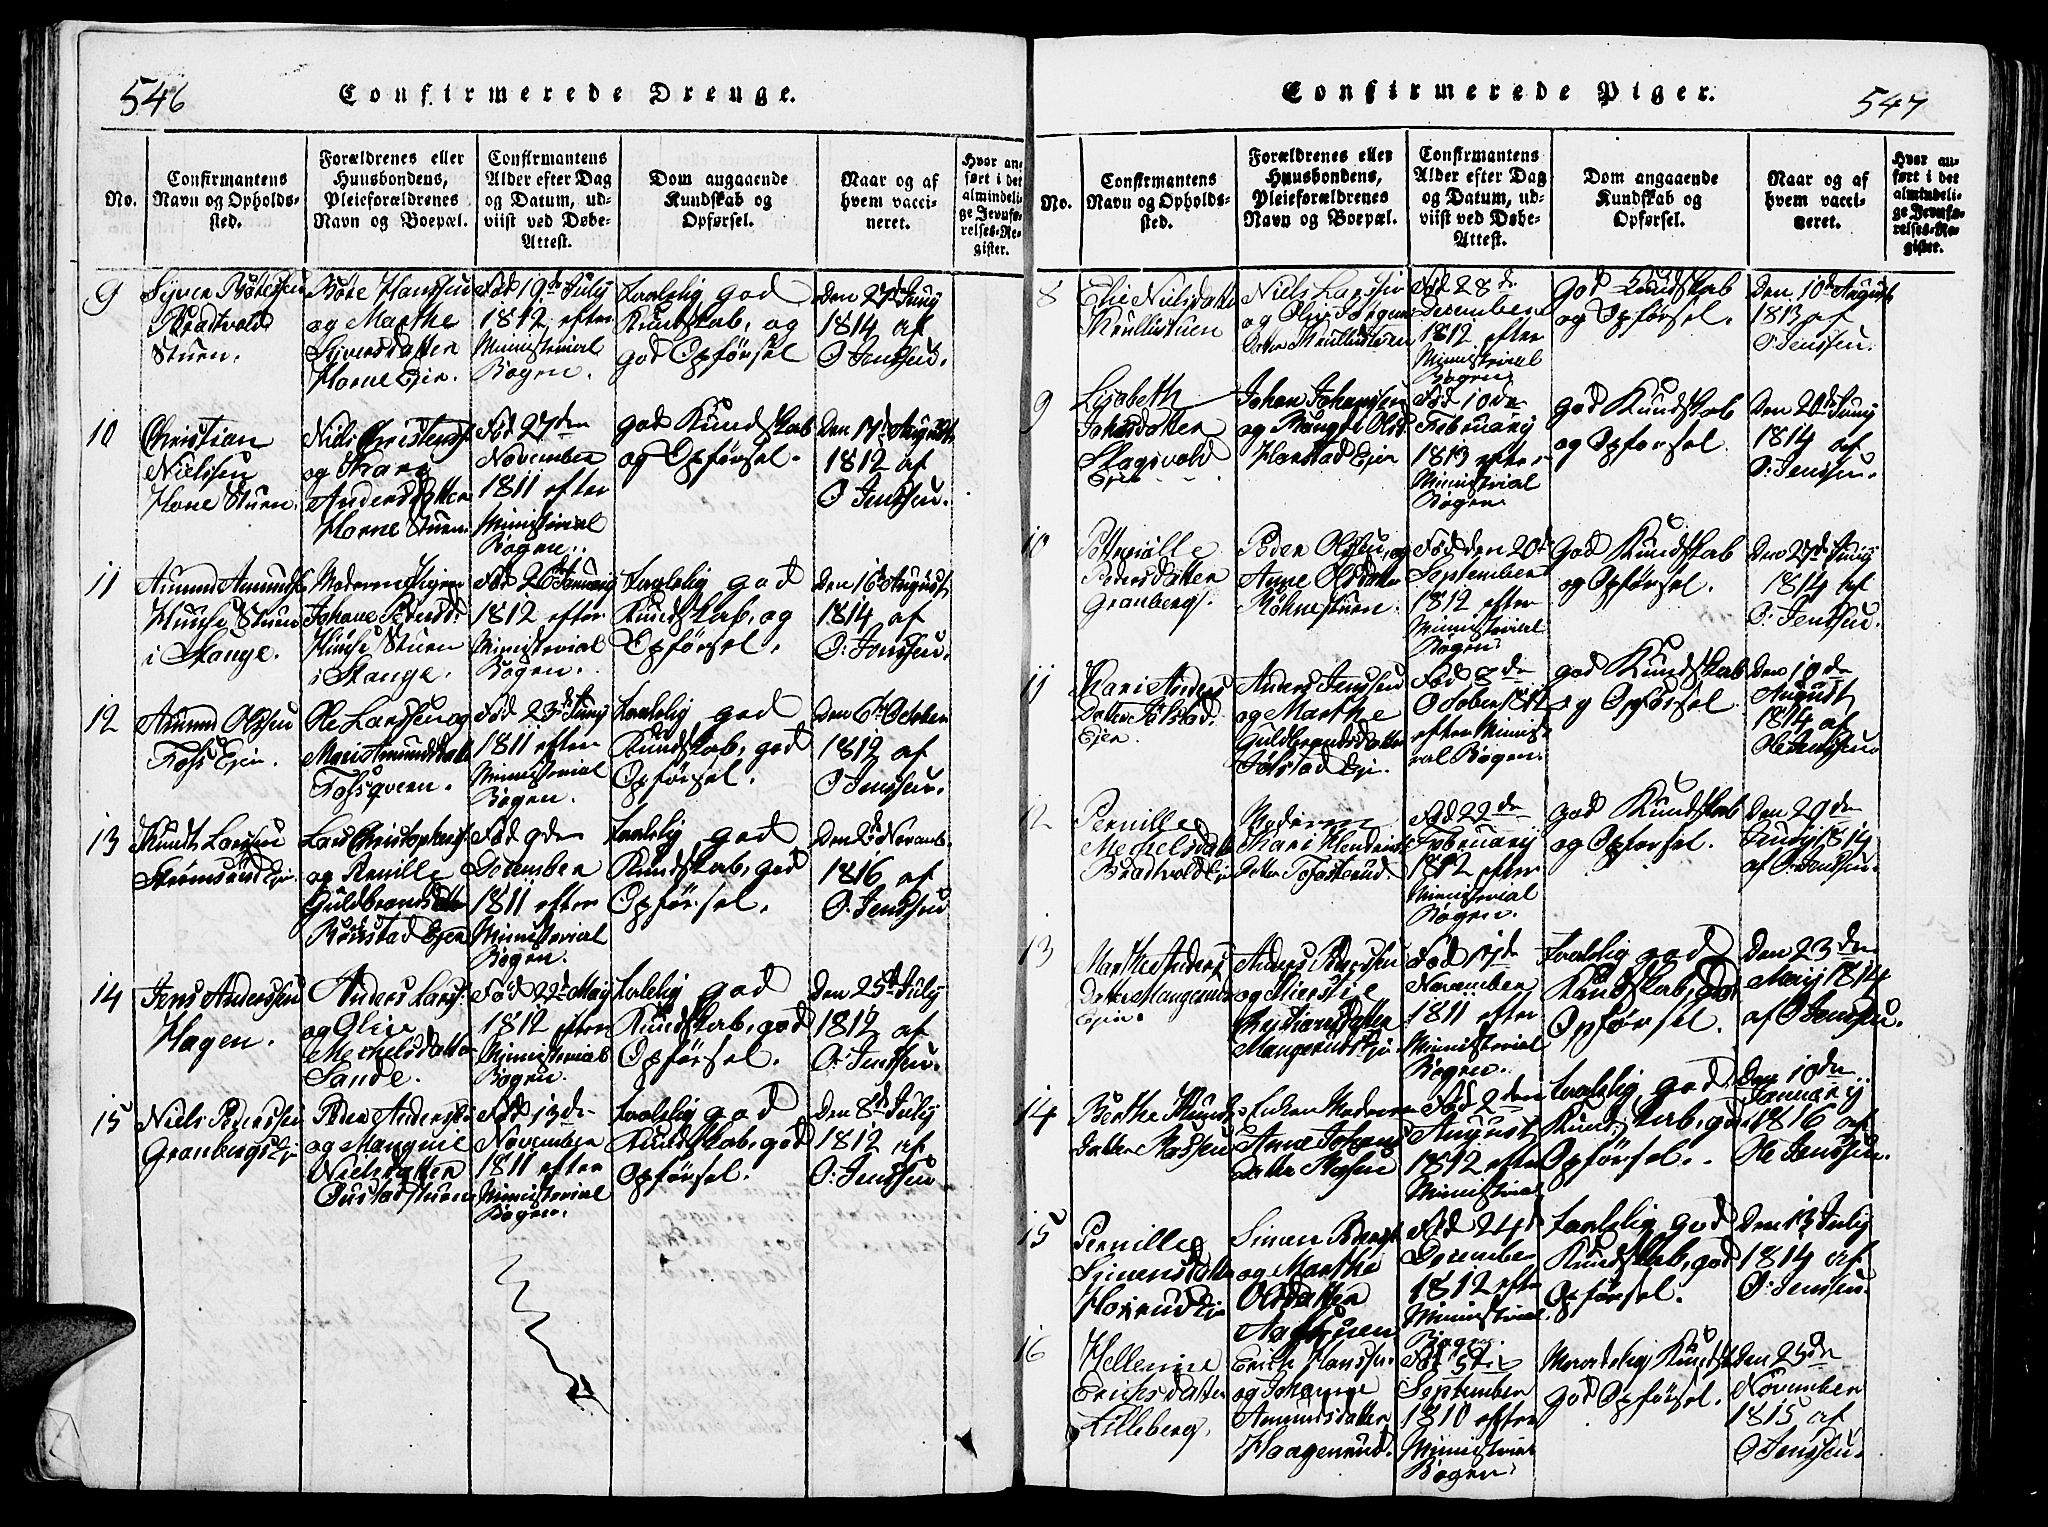 546
Confirmerede Drenge.
No.
Confirmantens
Navn og Opholds-
sted.
Forældrenes eller
Huusbondens,
Pleieforældrenes
Navn og Boepæl.
Confirmantens
Alder efter Dag
og Datum, ud-
viist ved Døbe-
Attest.
Dom angaaende
Kundskab og
Opførsel.
Naar og af
hvem vacci-
neret.
Hvor an-
ført i det
almindeli-
ge Jevnfø-
relses-Re-
gister.
9
Syver
Stuen.
og Marthe
Syversdatter
Horne Ejer.
Fød 19d July
1812 efter
Ministerial
Bogen.
temelig god
Kundskab, og
god Opførsel
Den 27d Juny
1814 af
O Jenssen.
10
Christian
Nielssen
Horne Stuen.
Niels Christenss
og
Andersdatter
Horne Stuen.
Fød 27den
November
1811 efter
Ministerial
Bogen.
god Kundskab
og Opførsel.
Den 17d August
1812 af
O Jenssen.
11
Amund Amunds
Stuen
i Stange.
Moderen Pigen
Johane Pedersd.
Stuen
i Stange.
Fød 26d January
1812 efter
Ministerial
Bogen.
god
Kundskab, og
Opførsel.
Den 16d August
1814 af
O: Jenssen.
12
Amund Olssen
Foss Ejer.
Ole Larssen og
Mari Amundsdatt
Fossqvern.
Fød 23d Juny
1811 efter
Ministerial
Bogen.
god
Kundskab, god
Opførsel.
Den 6d October
1812 af
O Jenssen.
13
Knudt Larssen
Strømsrud Ejer
Lars Christophers
og Pernille
Guldbrandsdatter
Ejer
Fød 9de
December
1811 efter
Ministerial
Bogen.
god
Kundskab, god
Opførsel.
Novemb
1816 af
O. Jenssen
14
Jens Anderssen
Hagen.
Anders Larss
og Olie
Mechelsdatter
Sande.
Fød 22d May
1812 efter
Ministerial
Bogen.
god
Kundskab, god
Opførsel.
Den 25d July
1812 af
O: Jenssen.
15
Niels Pederssen
Granbergs Ej
Peder Anderssen
og
Nielsdatter
stuen
Fød 13de
November
1811 efter
Ministerial
Bogen.
god
Kundskab, god
Opførsel.
Den 8d July
1812 af
O: Jenssen
547
Confirmerede Piger.
No.
Confirmantens
Navn og Opholds-
sted.
Forældrenes eller
Huusbondens,
Pleieforældrenes
Navn og Boepæl.
Confirmantens
Alder efter Dag
og Datum, ud-
viist ved Døbe-
Attest.
Dom angaaende
Kundskab og
Opførsel.
Naar og af
hvem vacci-
neret.
Hvor an-
ført i det
almindeli-
ge Jevnfø-
relses-Re-
gister.
8
Nielsdatter
Niels Larssen
og
Fød 28de
December
1812 efter
Ministerial
Bogen.
god Kundskab
og Opførsel.
Den 10d August
1813 af
O Jenssen.
9
Lisabeth
Johansdatter
Slagsvold
Ejer
Johan Johanssen
og
Harstad Ejer
Fød 10de
February
1813 efter
Ministerial
Bogen.
god Kundskab
og Opførsel.
Den 20d Juny
1814 af
O. Jenssen.
10
Pedersdatter
Granberg.
Peder Olssen, og
Anne Olsdatter
stuen.
Fød den 20d
September
1812 efter
Ministerial
Bogen
god Kundskab
og Opførsel.
Den 27d Juny
1814 af
O: Jenssen.
11
Kari Anders
Datter Jølstad
Ejer.
Anders Jenssen
og Marthe
Guldbrandsdatter
Jølstad Eje.
Fød 8de
October 1812
efter Ministe
rial Bogen.
god Kundskab
og Opførsel
Den 10de
August
1814 af
Ole Jenssen
12
Pernille
Mechelsdatt
Bradtvold Ejer
Moderen
Kari Hendrich
datter
Fød 22de
February
1812 efter
Ministerial
Bogen.
god Kundskab
og Opførsel.
Den 20de
1814
af O: Jenssen.
13
Marthe Anders
Datter Mangerud
Ejer.
Anders Pederssen
og
Christiansdatter
Mangerud Eje
Fød 17de
November
1811 efter
Ministerial
Bogen.
god
Kundskab, god
Opførsel.
Den 23de
May 1814
af O Jenssen.
14
Berthe Knuds
datter
Enken Moderen
Anne Johans
datter
Fød 2den
August
1812 efter
Ministerial
god
Kundskab, god
Opførsel.
Den 10de
January
1816 af
Ole Jenssen.
15
Pernille
Simensdatter
Ejer
Simen Pederss
og Marthe
Olsdatter
Fød 24d
December
1812 efter
Ministerial
Bogen
god
Kundskab, god
Opførsel.
Den 13 July
1814 af
O: Jenssen.
16
Hellenne
Erichsdatter
Lilleberg.
Erich Hanssen
og Johanne
Amundsdatter
Haagenrud.
Fød 5te
September
1810 efter
Ministerial
Bogen.
Kundsk
god Opførsel.
Den 25de
November
1815 af
O Jenssen.